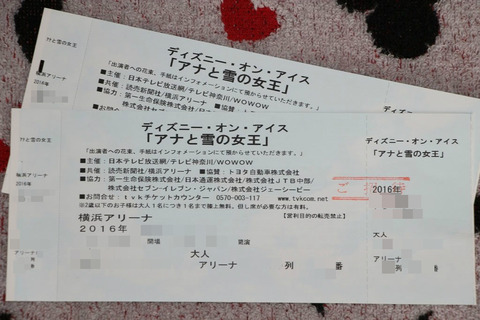 アナと雪の女王
横浜アリーナ
2016年
ディズニー・オン・アイス
「アナと雪の女王」
「出演者への花束、手紙はインフォメーションにて預からせていただきます。」
■主催：日本テレビ放送網/テレビ神奈川/WOWOW
■共催：読売新聞社/横浜アリーナ ■協賛：トヨタ自
■協力：第一生命保険株式会社/日本
株式会社セブン
アナと雪の女王
横浜アリーナ
2016年
アリーナ
ディズニー・オン・アイス
「アナと雪の女王」
「出演者への花束、手紙はインフォメーションにて預からせていただきます。」
■主催：日本テレビ放送網/テレビ神奈川/WOWOW
■共催：読売新聞社/横浜アリーナ ■協賛：トヨタ自動車株式会社
■協力：第一生命保険株式会社/日本通運株式会社/株式会社JTB中部/
株式会社セブン-イレブン・ジャパン/株式会社ジェーシービー
■お問合せ：tvkチケットカウンター 0570-003-117 www.tvkcom.net
※2歳以下のお子様は大人1名につき1名まで膝上無料。但し席が必要な方は有料。
横浜アリーナ 【営利目的の転売禁止】
2016年
開場 開演
大人
アリーナ 列 番
ご
2016年
大人
アリーナ
列 番